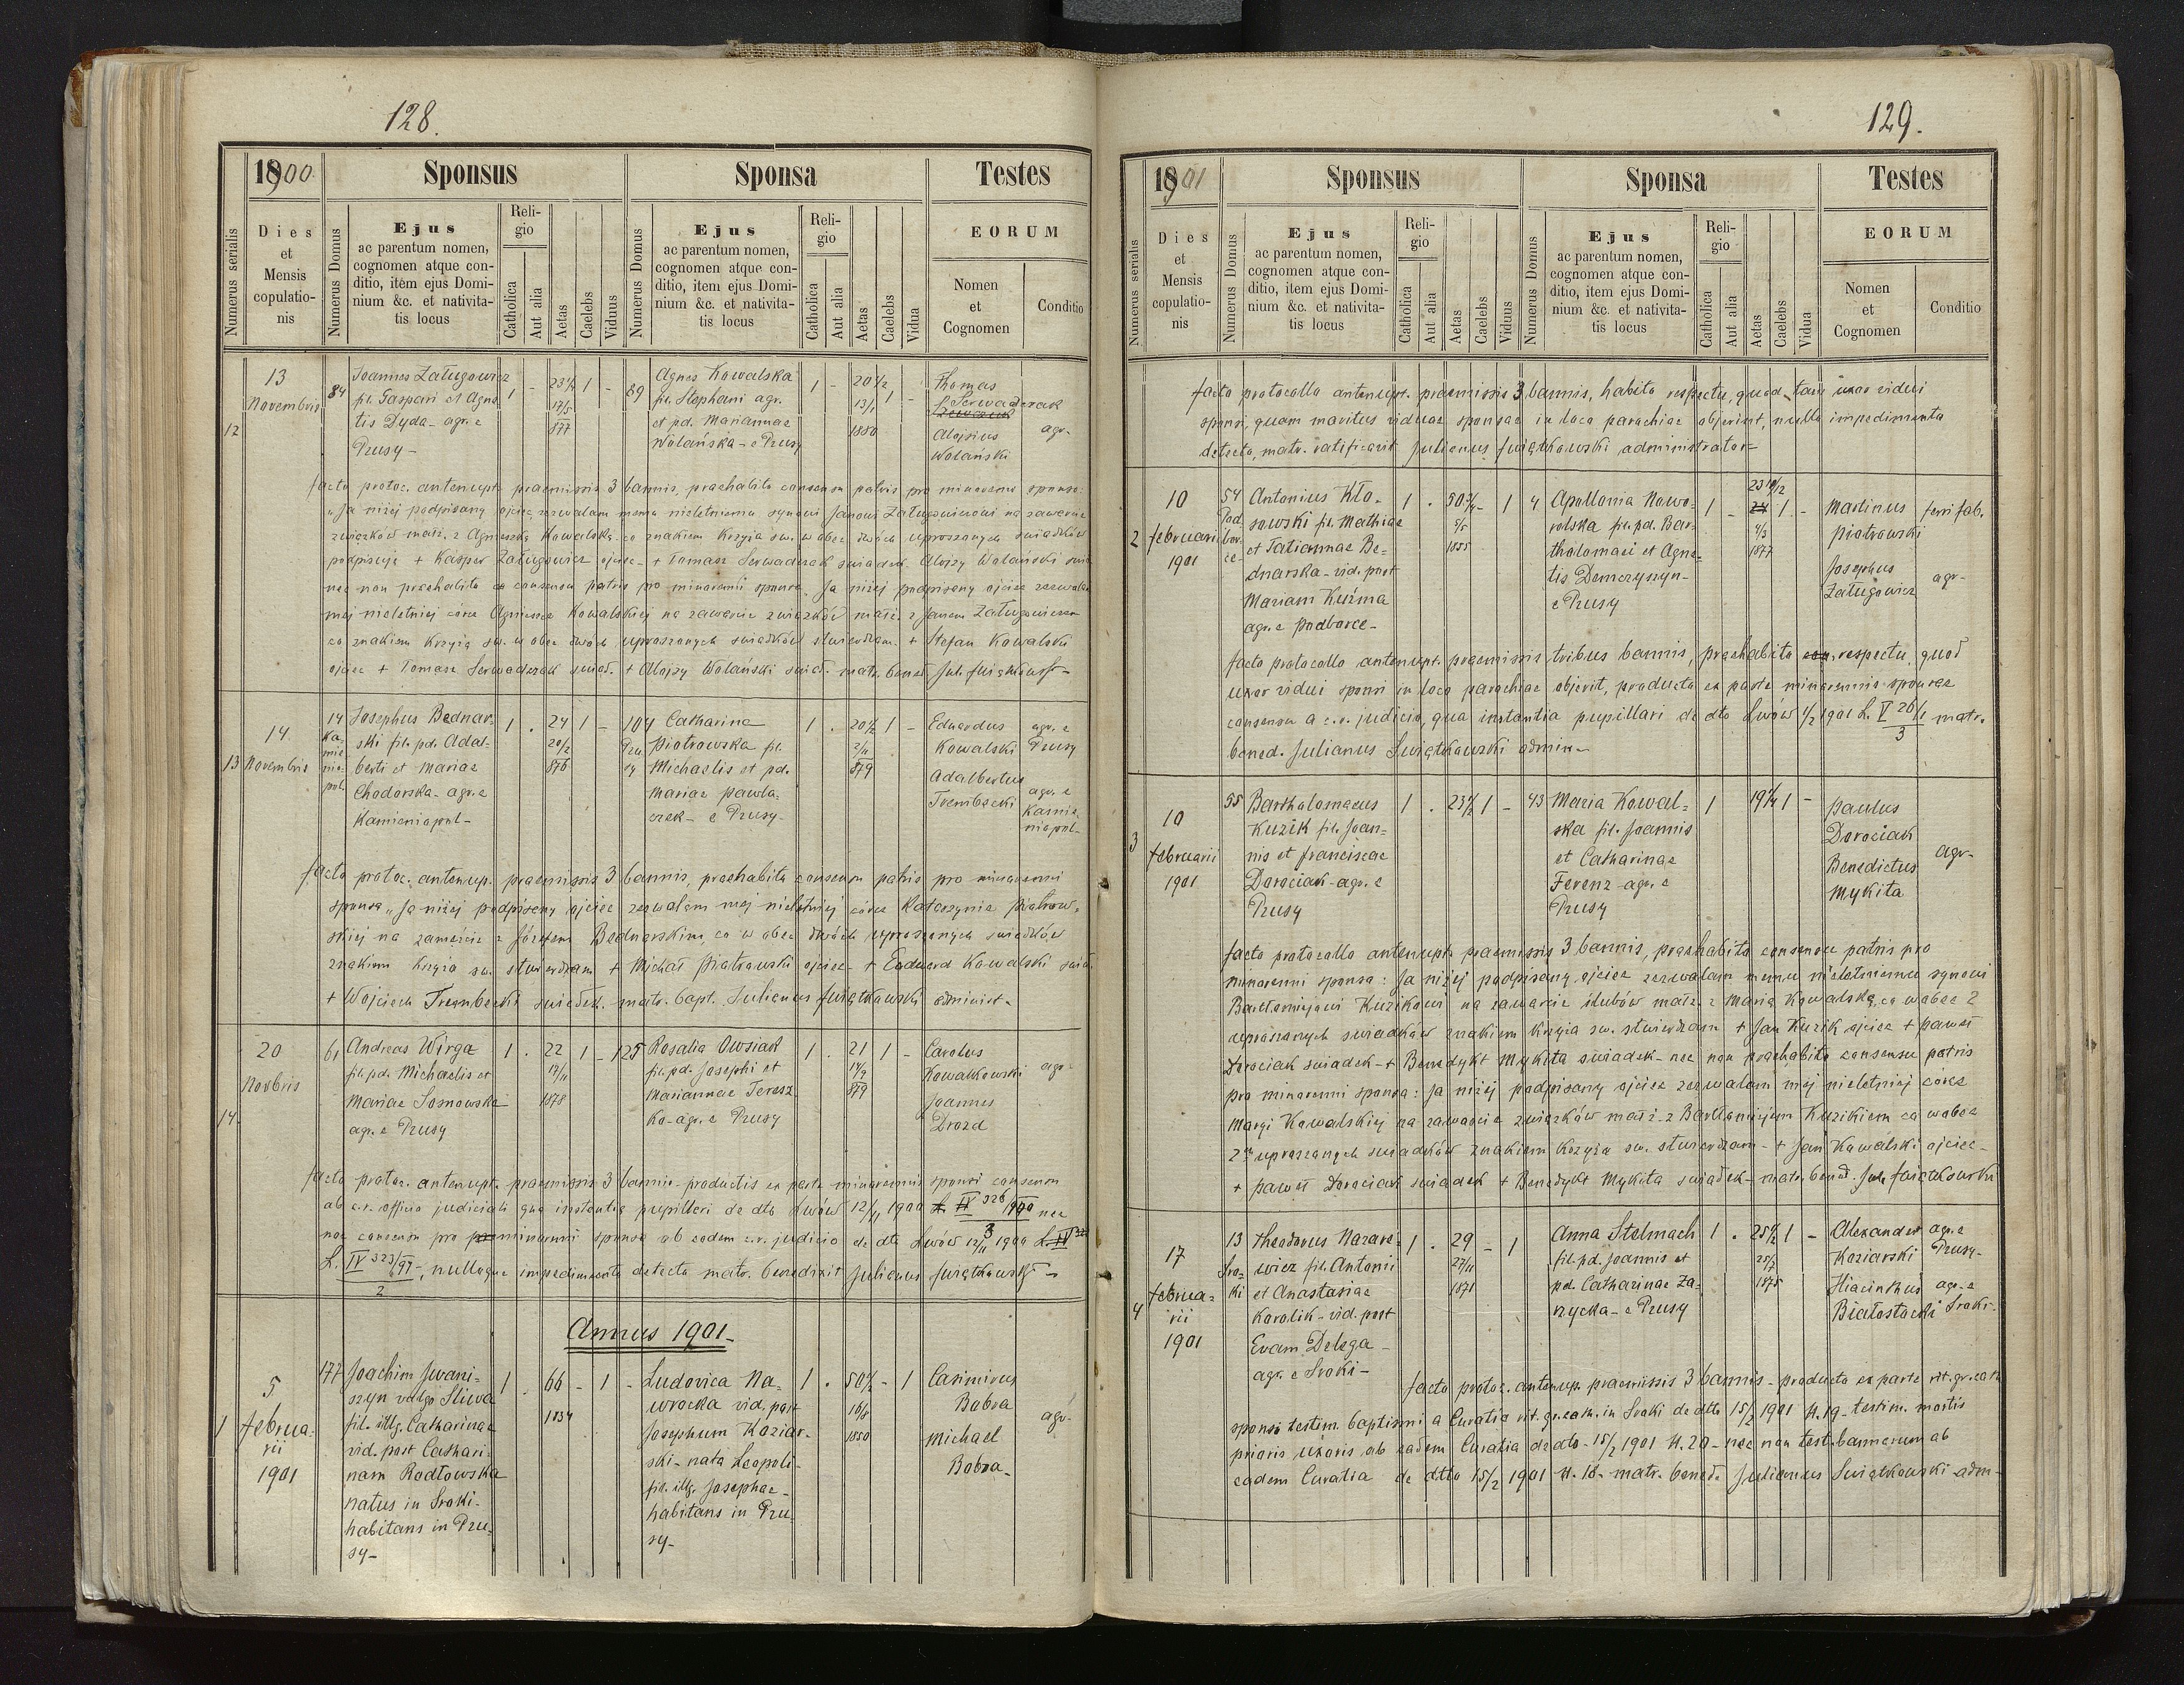 128.
1900.
Sponsus
Sponsa
Testes
Numerus serialis
Dies
et
Mensis
copulatio-
nis
Numerus Domus
Ejus
ac parentum nomen,
cognomen atque con-
ditio, item ejus Domi-
nium &c. et nativita-
tis locus
Reli-
gio
Catholica
Aut alia
Aetas
Caelebs
Viduus
Numerus Domus
Ejus
ac parentum nomen,
cognomen atque con-
ditio, item ejus Domi-
nium &c. et nativita-
tis locus
Reli-
gio
Catholica
Aut alia
Aetas
Caelebs
Vidua
EORUM
Nomen
et
Cognomen
Conditio
12
13
Novembris
84
Joannes Załugowicz
fil. Gaspari et Agne
tis Dyda - agr. e
Prusy -
1 - 23 1/2 1 -
17/5
877
89
Agnes Kowalska
fil. Stephani agr.
et pd. Mariannae
Wolańska - e Prusy
1 - 20 1/2 1 -
13/1
1880
Thomas
Serwadczak
Aloisius
Wolański
agr.
facto protoc. antenupt. praemissis 3 bannis, praehabito consensu patris pro minorenni sponso:
"Ja niżej podpisany ojciec zezwalam memu nieletniemu synowi Janowi Załugowiczowi na zawarcie
związków małż. z Agnieszką Kowalską co znakiem krzyża sw. w obec dwóch uproszonych świadków
podpisuję + Kasper Załugowicz ojciec - + Tomasz Serwadczak świadek Alojzy Wolański świa
nec non praehabito consensu patris pro minorenni sponsa. Ja niżej podpisany ojciec zezwalam
mej nieletniej córce Agnieszce Kowalskiej na zawarcie związków małż. z Janem Załugowiczem
co znakiem krzyża sw. w obec dwóch uproszonych świadków stwierdzam. + Stefan Kowalski
ojciec + Tomasz Serwadczak świad. + Alojzy Wolański świad. matr. bened. Jul. Świątkowski -
13
14
Novembris
14
Ka
mie
nio-
pol.
Josephus Bednar-
ski fil. pd. Adal-
berti et Mariae
Chodorska - agr. e
Kamieniopol -
1 . 24 1 -
20/2
876
104
Pru
sy
Catharina
Piotrowska fil.
Michaelis et pd.
Mariae Pawla-
czek - e Prusy -
1 . 20 1/2 1 -
2/11
879
Eduardus
Kowalski
Adalbertus
Trembecki
agr. e
Prusy
agr. e
Kamie-
niopol -
facto protoc. antenup. praemissis 3 bannis, praehabito consensu patris pro minorenni
sponsa "Ja niżej podpisany ojciec zezwalam mej nieletniej córce Katarzynie Piotrow-
skiej na zamęście z Józefem Bednarskim, co w obec dwóch uproszonych świadków
znakiem krzyża sw. stwierdzam + Michał Piotrowski ojciec - + Eduard Kowalski świad.
+ Wojciech Trembecki świadek. matr. bapt. Julianus Świątkowski administ -
14.
20
Novbris
61
Andreas Wirga
fil. pd. Michaelis et
Mariae Sosnowska
agr. e Prusy
1 . 22 1 -
17/11
1878
125
Rosalia Owsiak
fil. pd. Josephi et
Mariannae Teresz
ko - agr. e Prusy
1 . 21 1 -
14/9
879
Carolus
Kowalkowski
Joannes
Drozd
agr.
facto protoc. antenupt. praemissis 3 bannis - productis ex parte minorennis sponsi consensu
ab c.r. officio judiciali qua instantia pupillari de dto Lwów 12/11 1900 L. IV 326/1900 nec
3
non consensu pro minorenni sponsa ab eodem c.r. judicio de dto Lwów 12/11 1900
L. IV 323/97 -, nulloque impedimento detecto matr. benedixit Julianus Świątkowski -
2
Annus 1901 -
1
5
februa-
rii
1901
177
Joachim Iwani-
szyn vulgo Sliwa
fil. illg. Catharinae
vid. post Cathari-
nam Rodłowska
natus in Sroki -
habitans in Pru-
sy -
1 . 66 - 1 -
1834
Ludovica Na-
wrocka vid. post
Josephum Koziar-
ski - nata Leopoli -
fil. illg. Josephae -
habitans in Pru-
sy -
1 . 50 1/2 - 1
16/8
1850
Casimirus
Bobra
Michael
Bobra -
agr.
129.
1901
Sponsus
Sponsa
Testes
Numerus serialis
Dies
et
Mensis
copulatio-
nis
Numerus Domus
Ejus
ac parentum nomen,
cognomen atque con-
ditio, item ejus Domi-
nium &c. et nativita-
tis locus
Reli-
gio
Catholica
Aut alia
Aetas
Caelebs
Viduus
Numerus Domus
Ejus
ac parentum nomen,
cognomen atque con-
ditio, item ejus Domi-
nium &c. et nativita-
tis locus
Reli-
gio
Catholica
Aut alia
Aetas
Caelebs
Vidua
EORUM
Nomen
et
Cognomen
Conditio
facto protocollo antenupt. praemissis 3 bannis, habito respectu, quod tam uxor vidui
sponsi, quam maritus viduae sponsae in loco parochiae objerint, nullo impedimento
detecto, matr. ratificavit Julianus Świątkowski administrator -
2
10
februarii
1901
54
Pod
bor-
ce -
Antonius Kło-
sowski fil. Mathiae
et Tatiannae Be-
dnarska - vid. post
Mariam Kuźma
agr. e Podborce -
1 . 50 3/4 - 1
5/5
1855
4
Apollonia Nowo-
rolska fil. pd. Bar-
tholomaei et Agne-
tis Demczyszyn -
e Prusy
1 - 23 10/12 1 -
4/3
1877
Martinus
Piotrowski
Josephus
Załugowicz
ferri fab.
agr -
facto protocollo antenupt. praemissis tribus bannis, praehabito respectu, quod
uxor vidui sponsi in loco parochiae objerit, producto ex parte minorennis sponsae
consensu a c.r. judicio, qua instantia pupillari de dto Lwów 1/2 1901 L. V 26/1 matr.
3
bened. Julianus Świątkowski admin -
3
10
februarii
1901
55
Bartholomaeus
Kuzik fil. Joan-
nis et Franciscae
Dorociak - agr. e
Prusy
1 . 23 1/2 1 -
43
Maria Kowal-
ska fil. Joannis
et Catharinae
Ferenz - agr. e
Prusy
1 19 1/4 1 -
Paulus
Dorociak
Benedictus
Mykita
agr -
facto protocollo antenupt. praemissis 3 bannis, praehabito consensu patris pro
minorenni sponso: Ja niżej podpisany ojciec zezwalam memu nieletniemu synowi
Bartłomiejowi Kuzikowi na zawarcie ślubów małż. z Maryą Kowalską, co w obec 2
uproszonych świadków znakiem krzyża sw. stwierdzam + Jan Kuzik ojciec + Paweł
Dorociak świadek - + Benedykt Mykita świadek - nec non praehabito consensu patris
pro minorenni sponsa: Ja niżej podpisany ojciec zezwalam mej nieletniej córce
Maryi Kowalskiej na zawarcie związków małż. z Bartłomiejem Kuzikiem co w obec
2ch uproszonych świadków znakiem krzyża sw. stwierdzam - + Jan Kowalski ojciec -
+ Paweł Dorociak świadek + Benedykt Mykita świadek - matr. bened. Jul. Świątkowski
4
17
februa-
rii
1901
13
Sro-
ki
Theodorus Nazare-
wicz fil. Antonii
et Anastasiae
Karolik - vid. post
Evam Delega -
agr. e Sroki -
1 . 29 - 1
27/11
1871
Anna Stelmach
fil. pd. Joannis et
pd. Catharinae Za-
rzycka - e Prusy
1 . 25 1/2 1 -
25/7
1875
Alexander
Koziarski
Hiacinthus
Białostocki
agr. e
Prusy -
agr. e
Sroki -
facto protoc. antenup. praemissis 3 bannis - producto ex parte rit. gr. cath
sponsi testim. baptismi a Curatia rit. gr. cath. in Sroki de dtto 15/2 1901 N. 19 - testim. mortis
prioris uxoris ab eadem Curatia de dto - 15/2 1901 N. 20 - nec non test. bannorum ab
eadem Curatia de dtto 15/2 1901 N. 18 - matr. bened. Julianus Świątkowski adm -